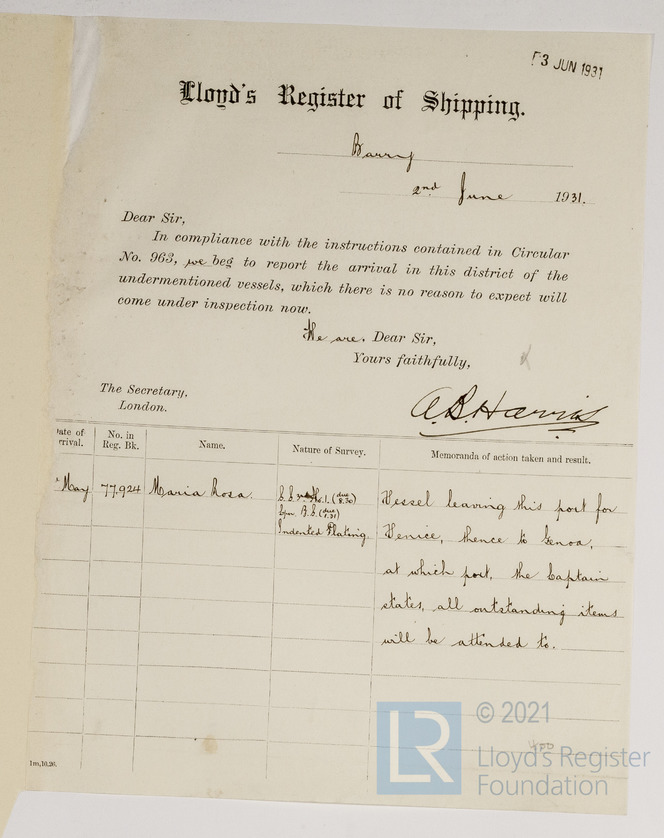 3 JUN 1931
Lloyd's Register of Shipping.
Barry
2nd June 1931.
Dear Sir,
In compliance with the instructions contained in Circular
No. 963, we beg to report the arrival in this district of the
undermentioned vessels, which there is no reason to expect will
come under inspection now.
We are, Dear Sir,
Yours faithfully,
The Secretary,
London.
A.B. Harris
ate of rrival. No. in Reg. Bk. Name. Nature of Survey. Memoranda of action taken and result.
May 77,924 Maria Rosa. S.S. No.1. (due 8.30) Vessel leaving this port for
B.S. (due 1.31)
Indented Plating. Venice, thence to Genoa,
at which port, the Captain
states, all outstanding items
will be attended to.
1m,10,26.
LR © 2021
Lloyd's Register
Foundation